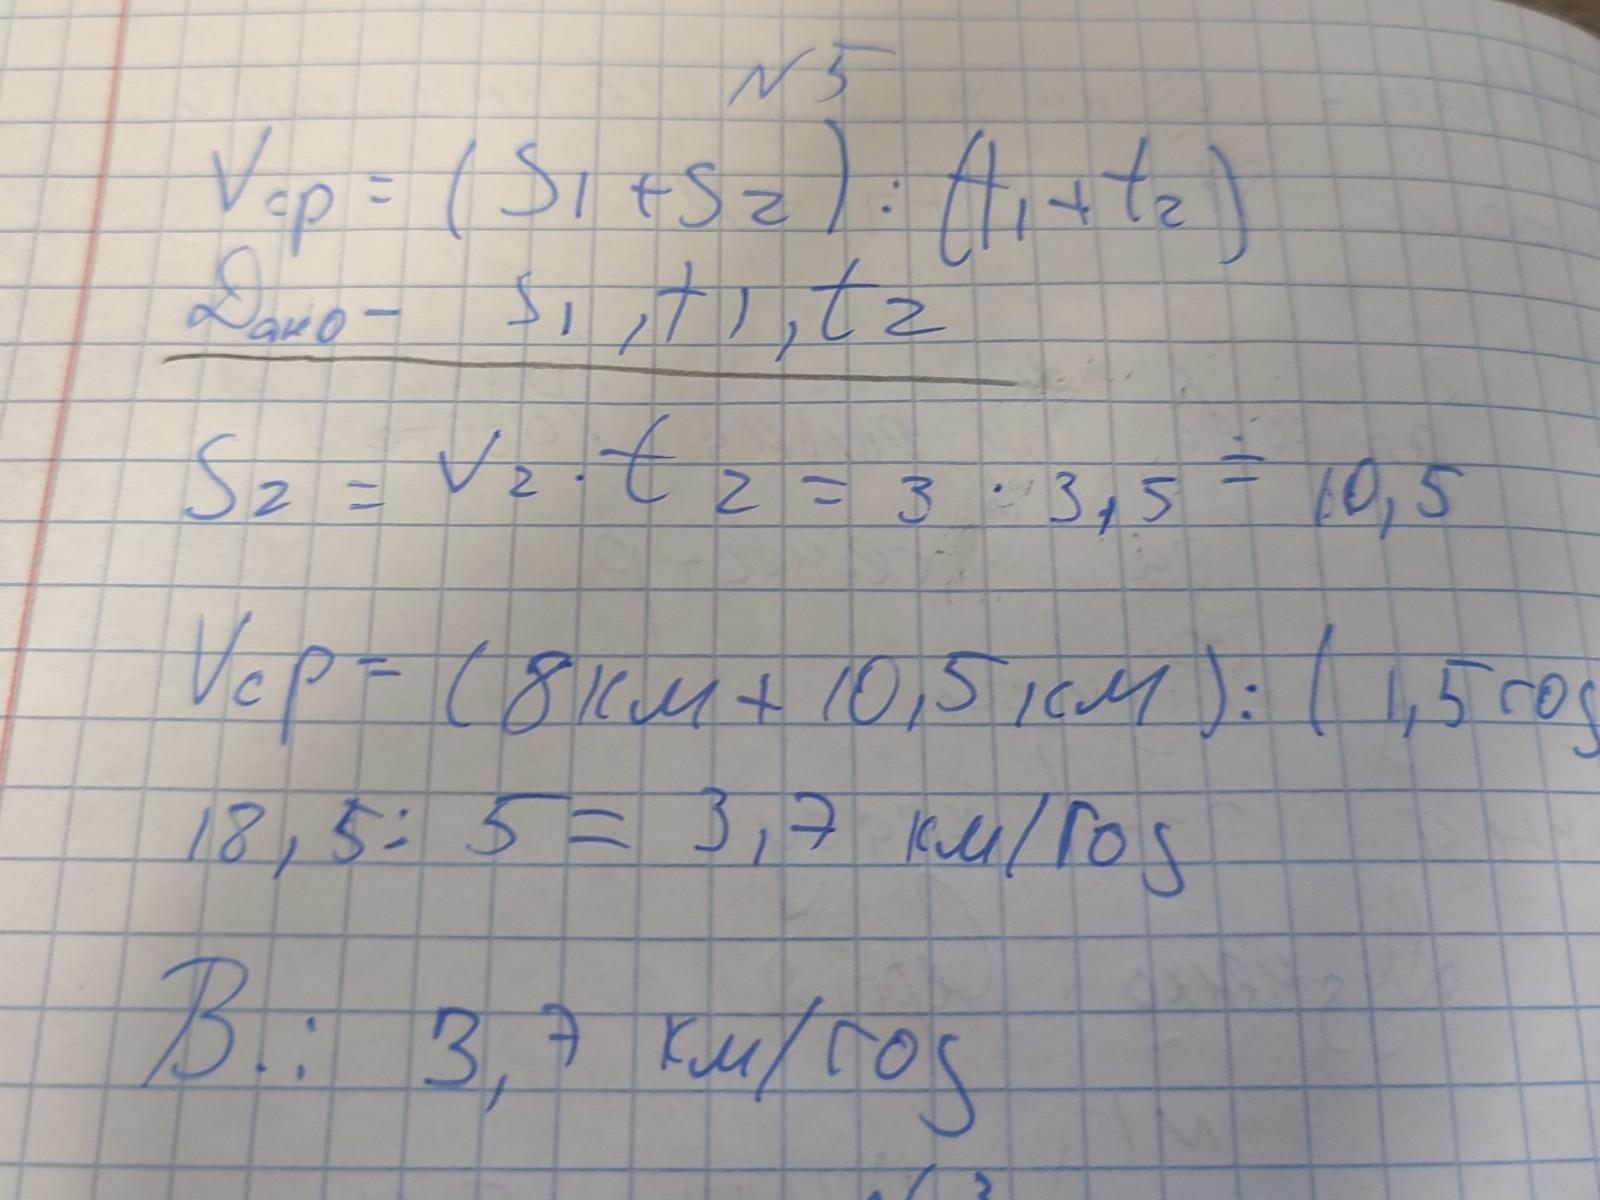 №5
Vср = (S1 + S2) : (t1 + t2)
Дано - S1, t1, t2
S2 = V2 · t2 = 3 · 3,5 = 10,5
Vср = (8км + 10,5 км) : (1,5 год
18,5 : 5 = 3,7 км/год
В.: 3,7 км/год